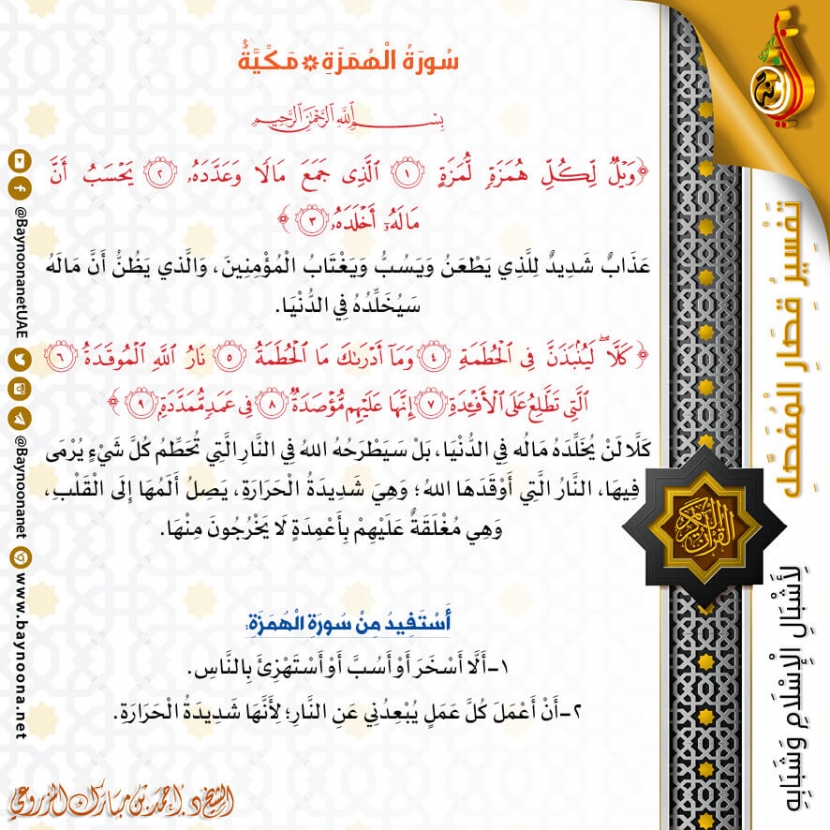 سُورَةُ الْهُمَزَةِ مَكِّيَّةٌ
بِسْمِ اللَّهِ الرَّحْمَٰنِ الرَّحِيمِ
﴿وَيْلٌ لِّكُلِّ هُمَزَةٍ لُّمَزَةٍ ١ الَّذِي جَمَعَ مَالًا وَعَدَّدَهُ ٢ يَحْسَبُ أَنَّ
مَالَهُ أَخْلَدَهُ ٣﴾
عَذَابٌ شَدِيدٌ لِلَّذِي يَطْعَنُ وَيَسُبُّ وَيَغْتَابُ الْمُؤْمِنِينَ، وَالَّذِي يَظُنُّ أَنَّ مَالَهُ
سَيُخَلِّدُهُ فِي الدُّنْيَا.
﴿كَلَّا لَيُنۢبَذَنَّ فِي الْحُطَمَةِ ٤ وَمَا أَدْرَىٰكَ مَا الْحُطَمَةُ ٥ نَارُ اللَّهِ الْمُوقَدَةُ ٦
الَّتِي تَطَّلِعُ عَلَى الْأَفْـِٔدَةِ ٧ إِنَّهَا عَلَيْهِم مُّؤْصَدَةٌ ٨ فِي عَمَدٍ مُّمَدَّدَةٍ ٩﴾
كَلَّا لَنْ يُخَلِّدَهُ مَالُه فِي الدُّنْيَا، بَلْ سَيَطْرَحُهُ اللهُ فِي النَّارِ الَّتِي تُحَطِّمُ كُلَّ شَيْءٍ يُرْمَى
فِيهَا، النَّارُ الَّتِي أَوْقَدَهَا اللهُ؛ وَهِيَ شَدِيدَةُ الْحَرَارَةِ، يَصِلُ أَلَمُهَا إِلَى الْقَلْبِ،
وَهِي مُغْلَقَةٌ عَلَيْهِمْ بِأَعْمِدَةٍ لَا يَخْرُجُونَ مِنْهَا.
أَسْتَفِيدُ مِنْ سُورَةِ الْهُمَزَةِ:
١-أَلَّا أَسْخَرَ أَوْ أَسُبَّ أَوْ أَسْتَهْزِئَ بِالنَّاسِ.
٢-أَنْ أَعْمَلَ كُلَّ عَمَلٍ يُبْعِدُنِي عَنِ النَّارِ؛ لِأَنَّهَا شَدِيدَةُ الْحَرَارَةِ.
الشيخ د. أحمد بن مبارك المزروعي
تَفْسِيرُ قِصَارِ الْمُفَصَّلِ
لِأَشْبَالِ الْإِسْلَامِ وَشَبَابِهِ
القرآن الكريم
@BaynoonanetUAE
@Baynoonanet
www.baynoona.net